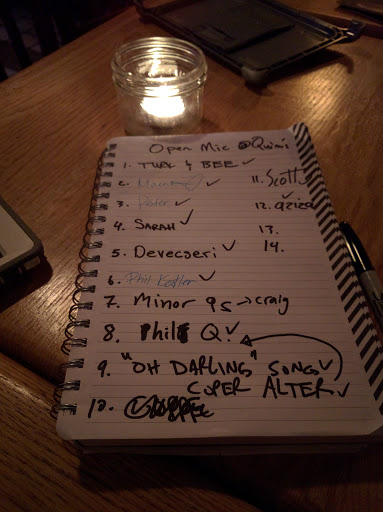 Open Mic @Quin's
1. TWX & BEE ✓
2. ✓
3. Peter ✓
4. SARAH ✓
5. Devecseri ✓
6. Phil Kestler ✓
7. Minor 9s → craig
8. Phil Q. ✓
9. "OH DARLING" SONG ✓
COPER ALTER ✓
10.
11. Scott
12. aziza
13.
14.